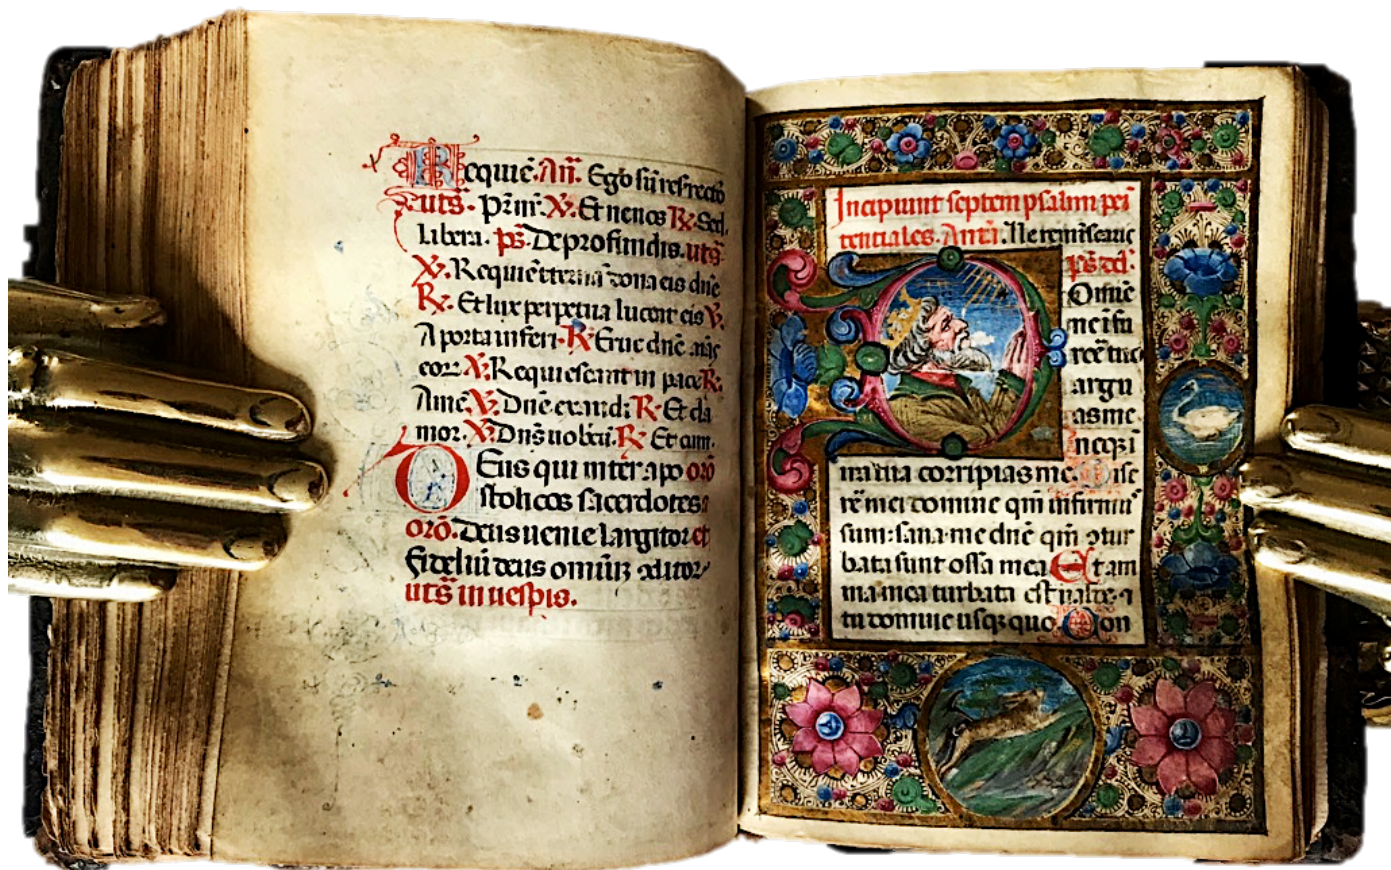 Requiē. Añ. Ego sū resrectō
uts̄. Pr̄ nr̄. ℣. Et ne nos ℟. Sed.
Libera. ps̄. De profundis. uts̄
℣. Requiē eternā dona eis dn̄e
℟. Et lux perpetua luceat eis ℣.
A porta inferi. ℟. Erue dn̄e aīas
eoꝝ ℣. Requiescant in pace ℟.
Amē ℣. Dn̄e exaudi ℟. Et cla
mor. ℣. Dn̄s uobcū. ℟. Et cum.
Eus qui inter apo orō
stolicos sacerdotes
orō. Deus uenie largitor et
Fideliū deus omniū 9ditor
uts̄ in uespis.
Incipiunt septem psalmi pei
tentiales. Anti. Ne reminiscare
ps̄ dd.
Omīe
ne ī fu
rore tuo
argu
as me
neqȝ ī
ira tua corripias me. Mise
rē mei domine qm̄ infirmus
sum: sana me dn̄e qm̄ 9tur
bata sunt ossa mea Et am
ma mea turbata est ualde
tu domine usqȝ quo Con